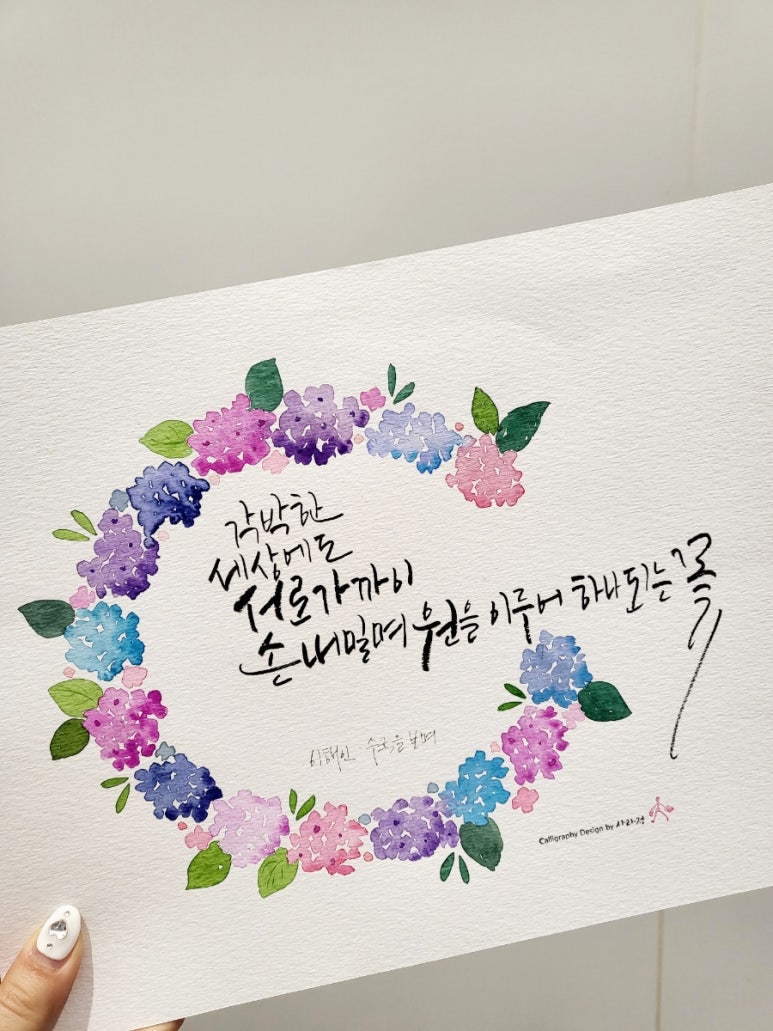 각박한
세상에도
서로 가까이
손 내밀며 원을 이루어 하나 되는 꽃
이해인 · 수국을 보며
Calligraphy Design by